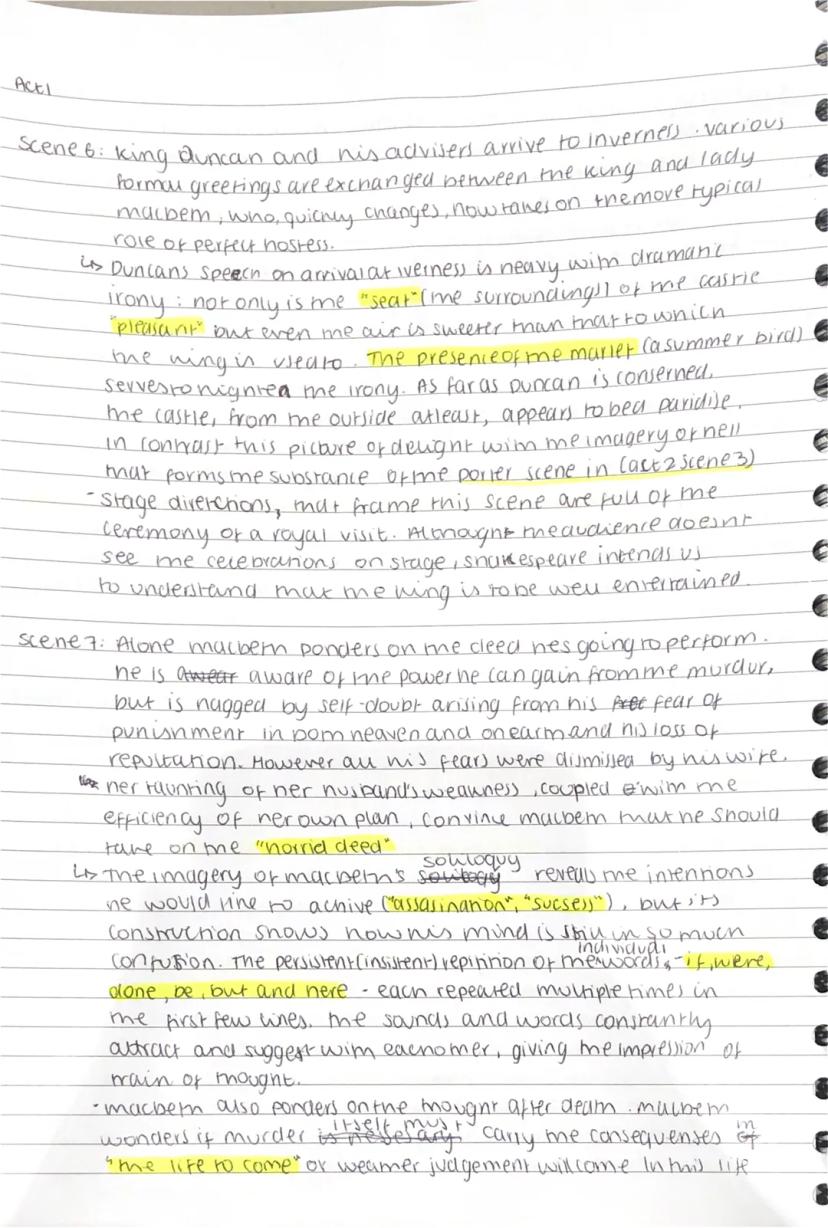 Act 1
Scene 6: King Duncan and his advisers arrive to Inverness. Various
formal greetings are exchanged between the king and lady
macbeth, who, quickly changes, now takes on the more typical
role of perfect hostess.
↳ Duncans speech on arrival at iverness is heavy with dramatic
irony: not only is the "seat" (the surrounding)) of the castle
"pleasant" but even the air is sweeter than that to which
the king is used to. The presence of the marlet (a summer bird)
serves to highten the irony. As far as Duncan is conserned,
the castle, from the outside atleast, appears to be a paridise.
In contrast this picture of delight with the imagery of hell
that forms the substance of the porter scene in (act 2 scene 3)
- Stage diverctions, that frame this scene are full of the
ceremony of a royal visit. Althought the audience doesnt
see the celebrations on stage, shakespeare intends us
to understand that the king is to be well entertained.
Scene 7: Alone macbeth ponders on the deed hes going to perform.
he is awear aware of the power he can gain from the murdur,
but is nagged by self-doubt arising from his fear of
punishment in both heaven and on earth and his loss of
reputation. However all his fears were dismissed by his wife.
her taunting of her husband's weakness, coupled with the
efficiency of her own plan, convince macbeth that he should
take on the "horrid deed"
soliloquy
↳ The imagery of macbeth's reveals the intentions
he would like to achive ("assasination", "sucsess"), but its
construction shows how his mind is still in so much
individual
confusion. The persistent (insistent) repitition of the words - if, were,
done, be, but and here - each repeated multiple times in
the first few lines. The sounds and words constantly
attract and suggest with eachother, giving the impression of
train of thought.
- macbeth also ponders on the thought after death. macbeth
itself must in
wonders if murder is nesesary carry the consequenses of
"the life to come" or weather judgement will come in this life